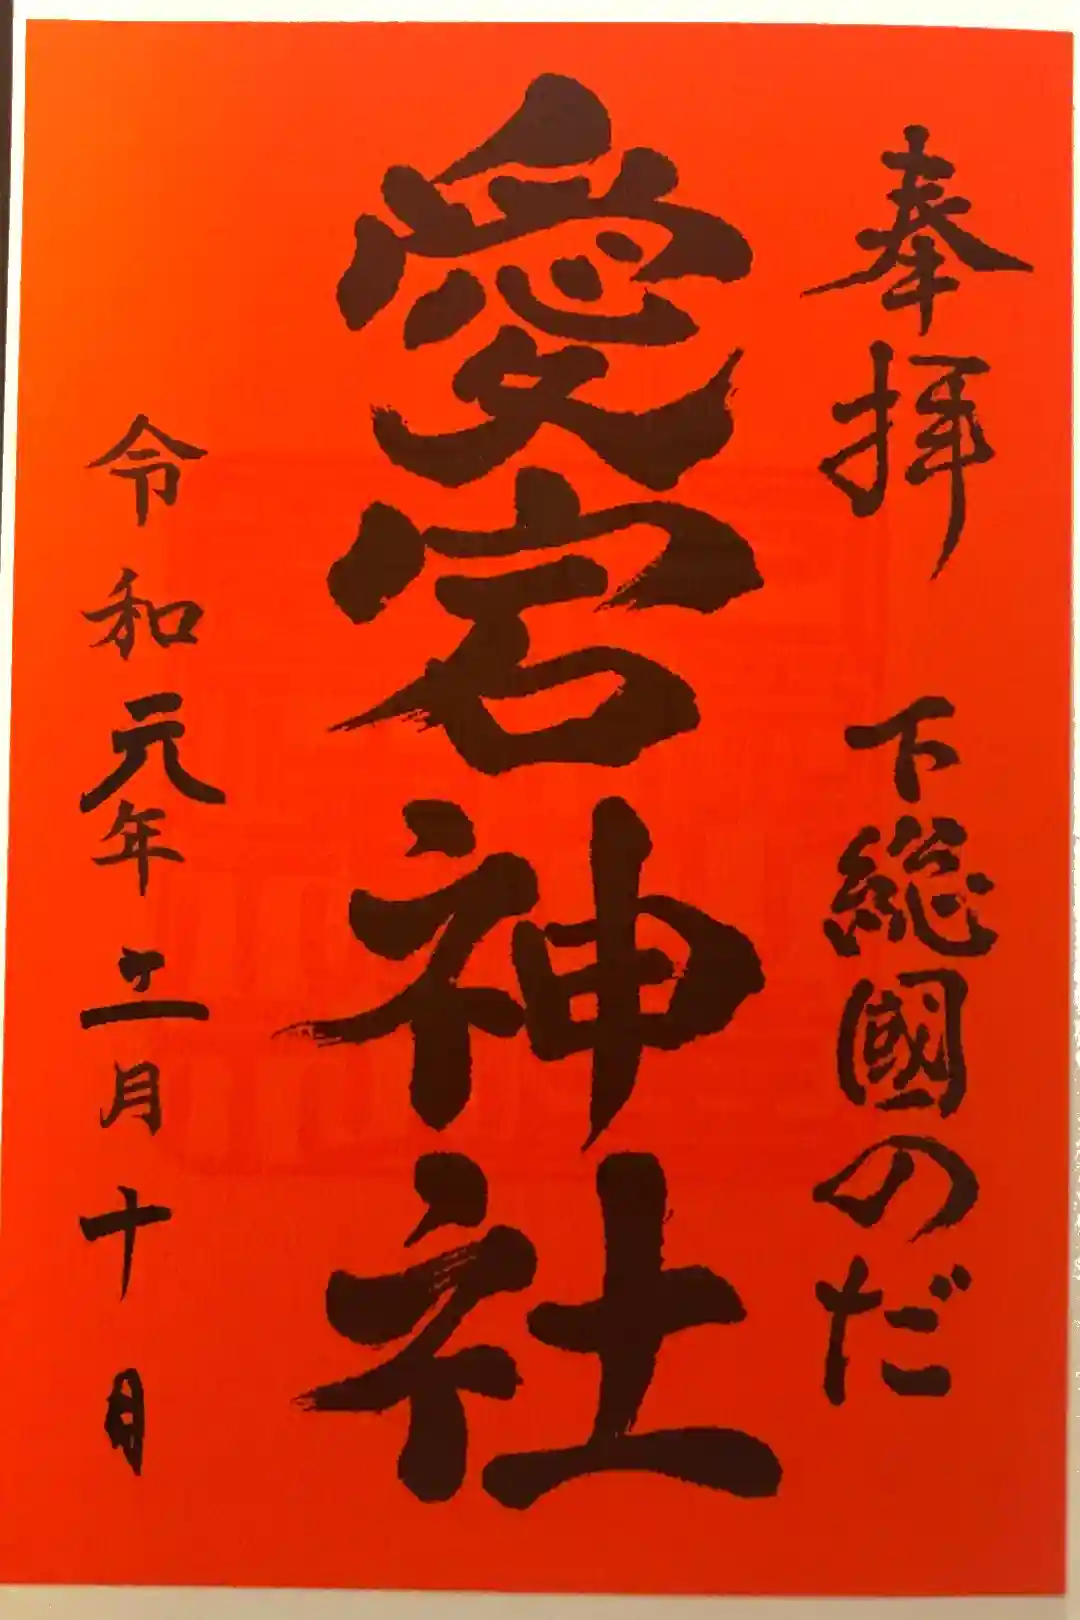 奉拝 下総國のだ
愛宕神社
令和元年十二月十日